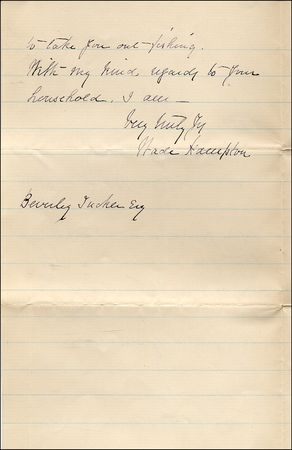 to take you out fishing.
With my kind regards to your
household. I am –
Very truly yrs
Wade Hampton
Beverley Tucker Esq